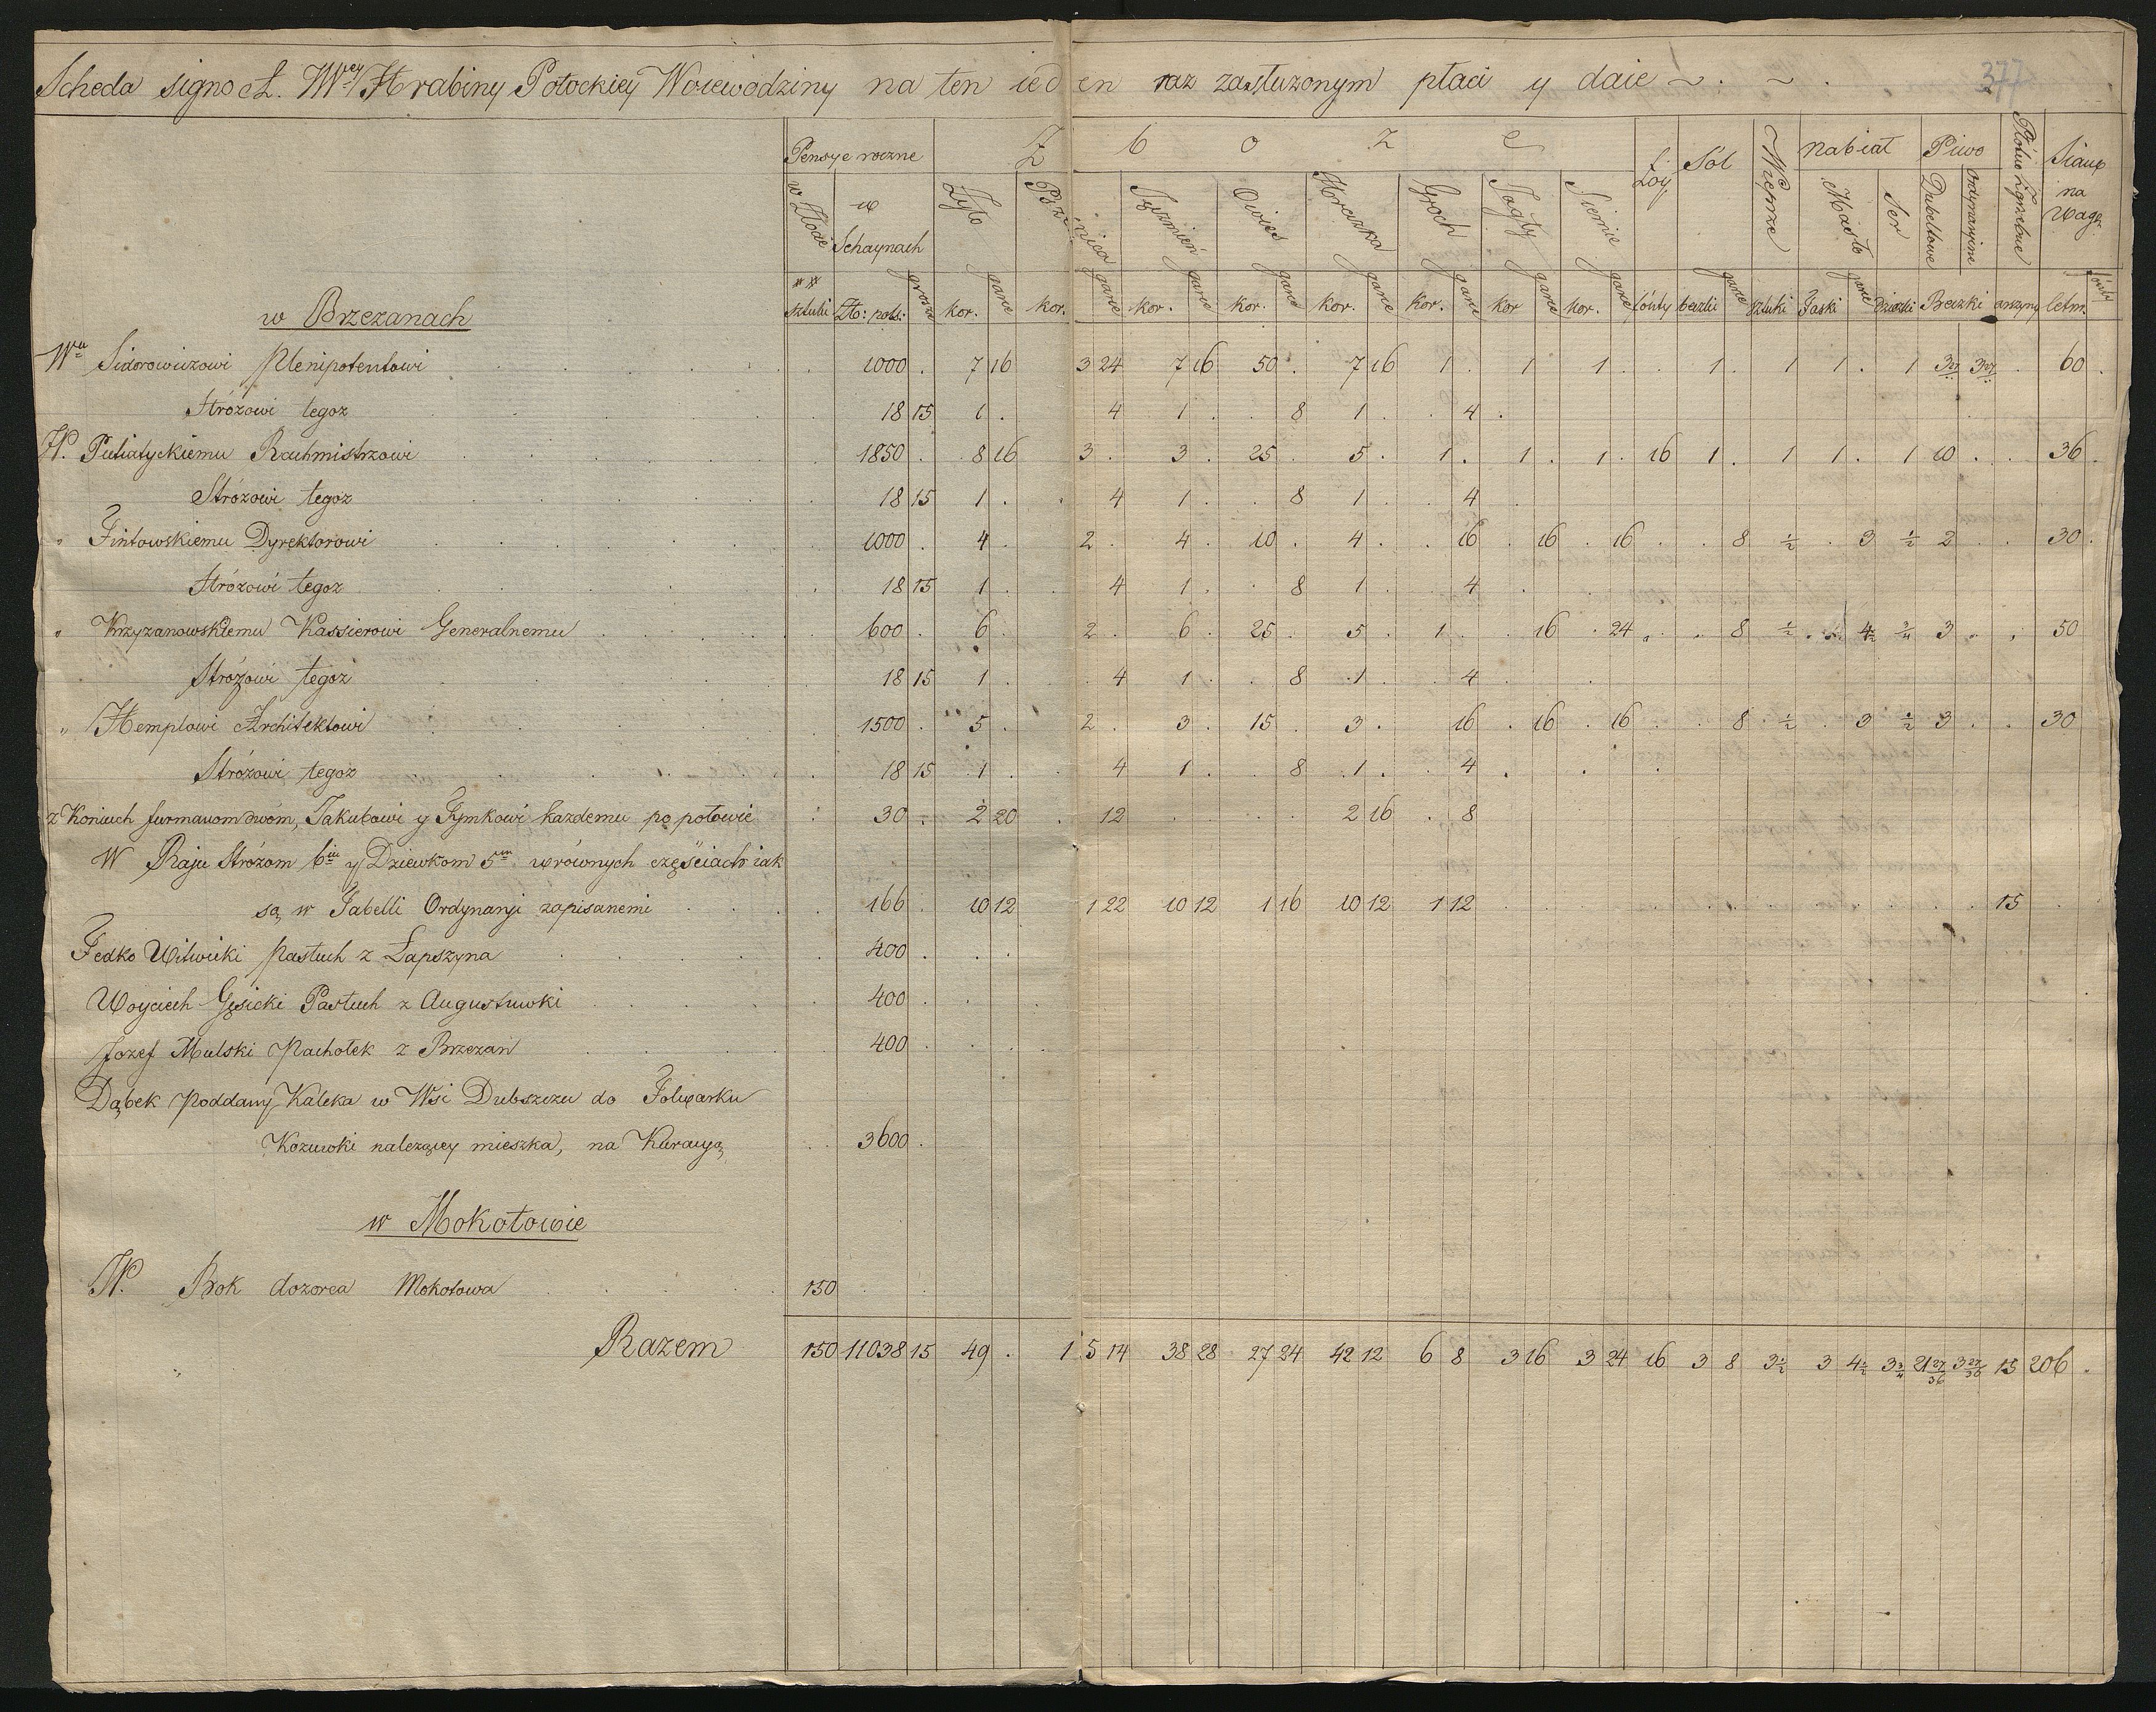 Scheda signo L. Wey Hrabiny Potockiey Woiewodziny na ten ieden raz zasłużonym płaci y daie
377
Pensye roczne Zboże Łóy Sól Wieprze Nabiał Piwo Płótno Zgrzebne Siano na Wagę
w Złocie w Schaynach Żyto Pszenica Jęczmień Owies Hreczka Groch Jagły Siemie Masło Ser Dubeltowe Ordynaryine
sztuki Zło: pols: grosze kor. garce kor. garce kor. garce kor. garce kor. garce kor. garce kor garce kor. garce fónty beczki garce sztuki Faski garce Dzieżki Beczki arszyny cetn. fonty
w Brzezanach
Wu Sidorowiczowi Plenipotentowi 1000 . 7 16 3 24 7 16 50 . 7 16 1 . 1 1 . . 1 . 1 1 . 1 3 27 3 27 . 60 .
Stróżowi tegoz 18 15 1 . 4 1 . . 8 1 . . 4 .
W. Putiatyckiemu Rachmistrzowi 1850 . 8 16 3 . 3 . 25 . 5 . 1 . 1 . 1 . 16 1 . 1 1 . 1 10 . . 36 .
Stróżowi tegoz 18 15 1 . 4 1 . . 8 1 . . 4 .
" Fintowskiemu Dyrektorowi 1000 . 4 . 2 . 4 . 10 . 4 . . 16 . 16 . 16 . . 8 ½ . 3 ½ 2 . . 30 .
Stróżowi tegoz 18 15 1 . 4 1 . . 8 1 . . 4 .
" Krzyzanowskiemu Kassierowi Generalnemu 600 . 6 . 2 . 6 . 25 . 5 . 1 . . 16 . 24 . . 8 ½ . 4½ ¾ 3 . . 50
Stróżowi tegoz 18 15 1 . . 4 1 . . 8 1 . . 4 .
" Hemplowi Architektowi 1500 . 5 . 2 . 3 . 15 . 3 . . 16 . 16 . 16 . . 8 ½ . 3 ½ 3 . . 30
Stróżowi tegoz 18 15 1 . . 4 1 . . 8 1 . . 4 .
z Koniuch furmanom dwóm, Jakubowi y Tymkowi kazdemu po połowie 30 . 2 20 . 12 . . . . 2 16 . 8
W Raju Stróżom 6iu y Dziewkom 5m w równych częściach iak
są w Tabelli Ordynaryi zapisanemi 166 . 10 12 1 22 10 12 1 16 10 12 1 12 15
Fedko Witwicki Pastuch z Łapszyna 400 .
Woyciech Gęsicki Pastuch z Augustuwki 400 .
Jozef Mulski Pachołek z Brzezan 400 .
Dąbek Poddany Kaleka w Wsi Dubszczu do Folwarku
Kozuwki nalezącey mieszka, na Kuracyą 3600 .
w Mokotowie
W. Bok dozorca Mokotowa 150 .
Razem 150 11038 15 49 . 15 14 38 28 127 24 42 12 6 8 3 16 3 24 16 3 8 3½ 3 4½ 3¾ 21 27/36 3 27/36 15 206 .